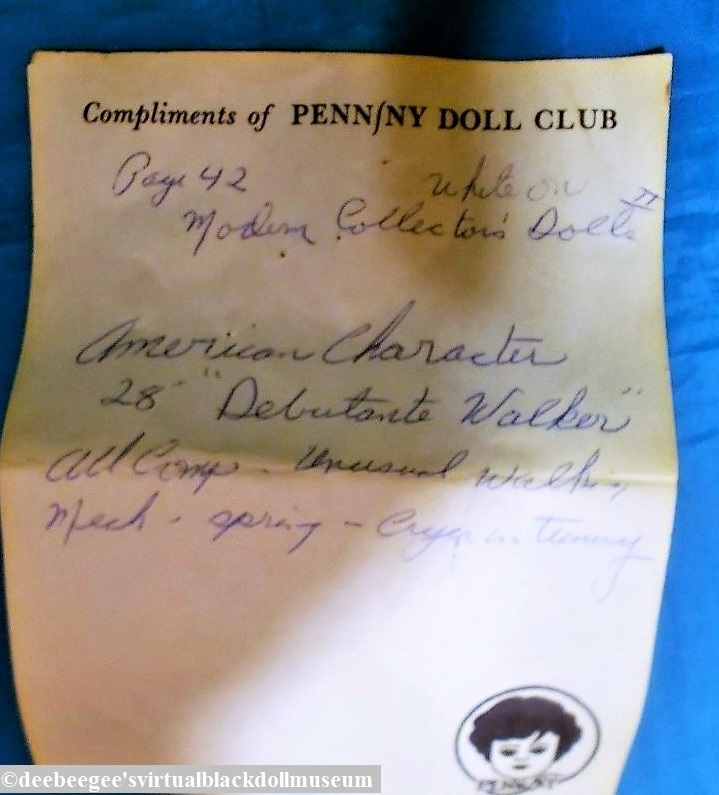 Compliments of PENN/NY DOLL CLUB
Page 42 White on
Modern Collector's Dolls II
American Character
28" "Debutante Walker"
All Comp - Unusual Walking
Mech - spring - Cryer in tummy
PENN/NY
©deebeegee'svirtualblackdollmuseum